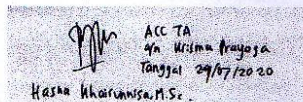 ACC TA
a/n Krisma Prayoga
Tanggal 29/07/2020
Hasna Khairunnisa, M.Sc.